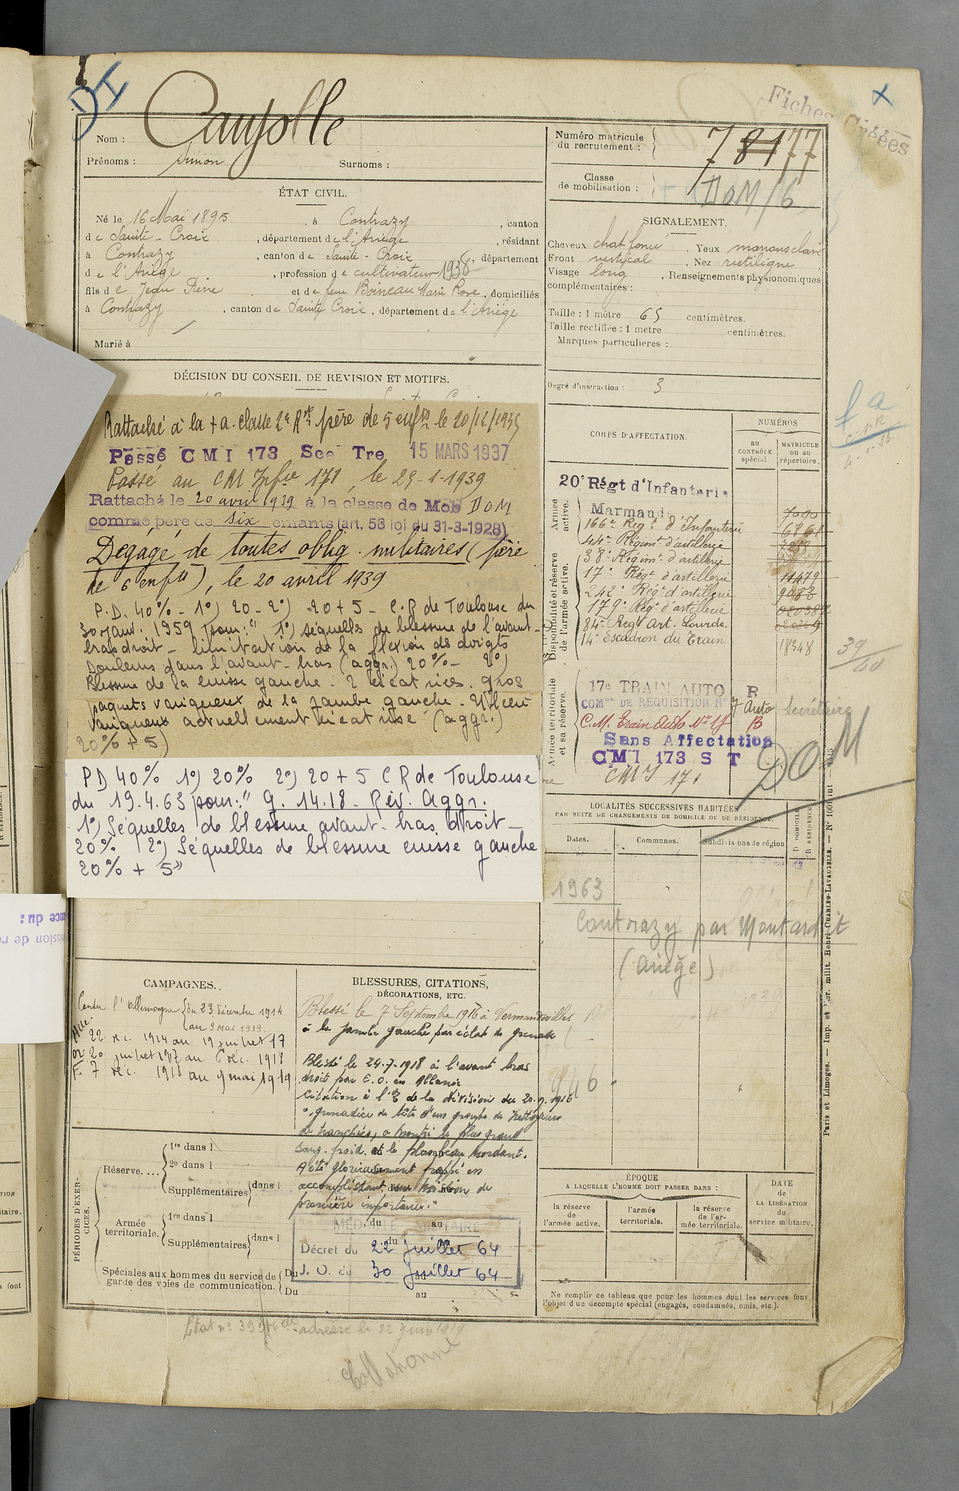 DI
Fiches Créées
Nom : Caujolle
Prénoms : Simon Surnoms :
Numéro matricule du recrutement : 7177
Classe de mobilisation : DOM/6
ÉTAT CIVIL.
Né le 16 Mai 1895, à Contrazy, canton
de Sainte-Croix, département de l'Ariège, résidant
à Contrazy, canton de Sainte-Croix, département
de l'Ariège, profession de cultivateur 1938
fils de Jean Pierre et de feue Boineau Marie Rose, domiciliés
à Contrazy, canton de Sainte Croix, département de l'Ariège
Marié à
SIGNALEMENT.
Cheveux chat foncé. Yeux marrons clair
Front vertical. Nez rectiligne
Visage long. Renseignements physionomiques
complémentaires :
Taille : 1 mètre 65 centimètres.
Taille rectifiée : 1 mètre centimètres.
Marques particulières :
Degré d'instruction : 3
DÉCISION DU CONSEIL DE REVISION ET MOTIFS.
Rattaché à la + a. classe 2e Rve père de 5 enfts le 20/12/1935
Passé CMI 173 Sec Tre 15 MARS 1937
Passé au CM Infie 171, le 25-1-1939
Rattaché le 20 avril 1939 à la classe de Mob DOM
comme père de six enfants (art. 58 loi du 31-3-1928)
Dégagé de toutes oblig. militaires (père
de 6 enfts), le 20 avril 1939
P.D. 40% - 1°) 20 - 2°) 20 + 5 - C.R de Toulouse du
30 janv. 1959 pour : " 1°) séquelles de blessure de l'avant-
bras droit - limitation de la flexion des doigts
Douleurs dans l'avant-bras (aggr.) 20% - 2°)
Blessure de la cuisse gauche - 2 cicatrices. gros
paquets variqueux de la jambe gauche - Ulcère
variqueux actuellement cicatrisé (aggr.)
20% + 5)
PD 40% 1°) 20% 2°) 20 + 5 C R de Toulouse
du 19.4.63 pour : " g. 14.18 - Rév. Aggr.
1°) Séquelles de blessure avant-bras droit -
20% 2°) Séquelles de blessure cuisse gauche
20% + 5"
CORPS D'AFFECTATION.
NUMÉROS
AU CONTRÔLE spécial
MATRICULE ou au répertoire.
Armée active.
Disponibilité et réserve de l'armée active.
Armée territoriale et sa réserve.
20e Régt d'Infanterie
Marmande
166e Régt d'Infanterie
44e Régiment d'artillerie
38e Régimt d'artillerie
17e Régt d'artillerie 11479
242e Régt d'artillerie
179e Régt d'artillerie
84e Régt Art. Lourde.
14e Escadron du Train 18348
17e TRAIN AUTO R
COMon DE REQUISITION N° 7 Auto
C.M. Train Auto N° 17 B
Sans Affectation
CMI 173 S T
CMI 171
secrétaire
DOM
39/40
LOCALITÉS SUCCESSIVES HABITÉES
PAR SUITE DE CHANGEMENTS DE DOMICILE OU DE RÉSIDENCE.
Dates. Communes. Subdivisions de région
D DOMICILE R RÉSIDENCE
1963
Contrazy par Montardit
(Ariège)
CAMPAGNES.
Contre l'Allemagne du 23 décembre 1914
au 9 Mai 1919.
22 déc. 1914 au 19 juillet 17
20 juillet 1917 au 6 déc. 1918
7 déc. 1918 au 9 mai 1919
BLESSURES, CITATIONS,
DÉCORATIONS, ETC.
Blessé le 7 Septembre 1916 à Vermandovillers
à la jambe gauche par éclat de grenade
Blessé le 24-7-1918 à l'avant bras
droit par E.O.
Citation à l'O de la division du 20.9.1916
"grenadier de tête d'un groupe de nettoyeurs
de tranchées, a montré le plus grand
sang-froid et le plus beau mordant.
A été glorieusement frappé en
accomplissant une mission de
première importance."
MÉDAILLE MILITAIRE
Décret du 22 juillet 64
J. O. du 30 juillet 64
PÉRIODES D'EXERCICES.
Réserve....
1re dans l
2e dans l
Supplémentaires dans l
Armée territoriale.
1re dans l
Supplémentaires dans l
Spéciales aux hommes du service de
garde des voies de communication.
Du au
Du au
ÉPOQUE
A LAQUELLE L'HOMME DOIT PASSER DANS :
la réserve de l'armée active.
l'armée territoriale.
la réserve de l'armée territoriale.
DATE
DE LA LIBÉRATION
du service militaire.
Ne remplir ce tableau que pour les hommes dont les services font
l'objet d'un décompte spécial (engagés, condamnés, omis, etc.).
Paris et Limoges. — Imp. et Libr. milit. Henri CHARLES-LAVAUZELLE.